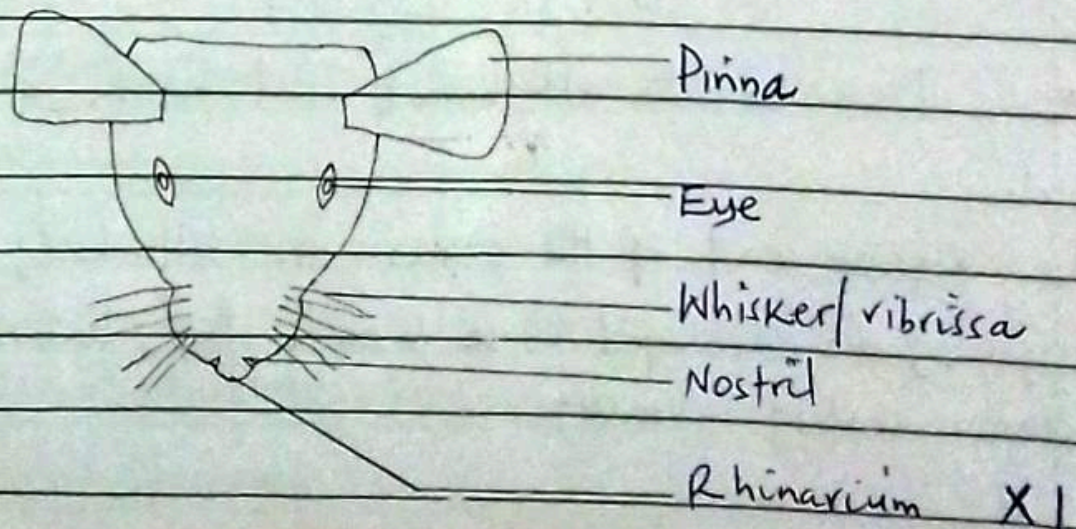 Pinna
Eye
Whisker/vibrissa
Nostril
Rhinarium X1